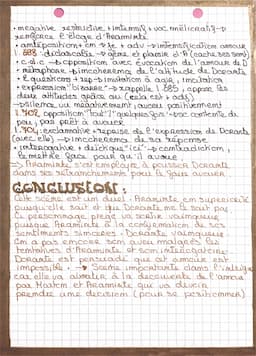 • négative restrictive + intensif + voc mélioratif →
renforce l'éloge d'Araminte
• antéposition + en + adv → intensification amour
l. 688 didascalies → gêne et plainte d'A (cache ses sent)
• c.d.c → opposition avec évocation de l'amour de D
• métaphore → incohérence de l'attitude de Dorante
• questions rep → invitation à agir, incitation
• expression "bizarre" → rappelle l. 685, oppose les
deux attitudes (cela est + adj)
→ dilemme, ou négativement, aucun positivement
l. 702 opposition "tout" / "quelquefois"
peu, pas prêt à avouer
l. 704 exclamative + reprise de l'expression de Dorante
(avec elle) → incohérence de sa réponse
• interrogative + déictique "ci" → contradiction,
le mettre face à ce qu'il avoue
=> Araminte s'est employée à pousser Dorante
dans ses retranchements pour le faire avouer
CONCLUSION :
Cette scène est un duel : Araminte en supériorité
puisqu'elle sait et que Dorante ne le sait pas
Ce personnage piégé va sortir vainqueur
puisque Araminte a la confirmation de ses
sentiments sincères. Dorante vainqueur
On a pas encore son aveu malgré les
tentatives d'Araminte et son interrogatoire
Dorante est persuadé que cet amour est
impossible. → Scène importante dans l'intrigue
car elle va aboutir à la découverte de l'amour
par Marton et Araminte qui va devoir
prendre une décision (pour se positionner)